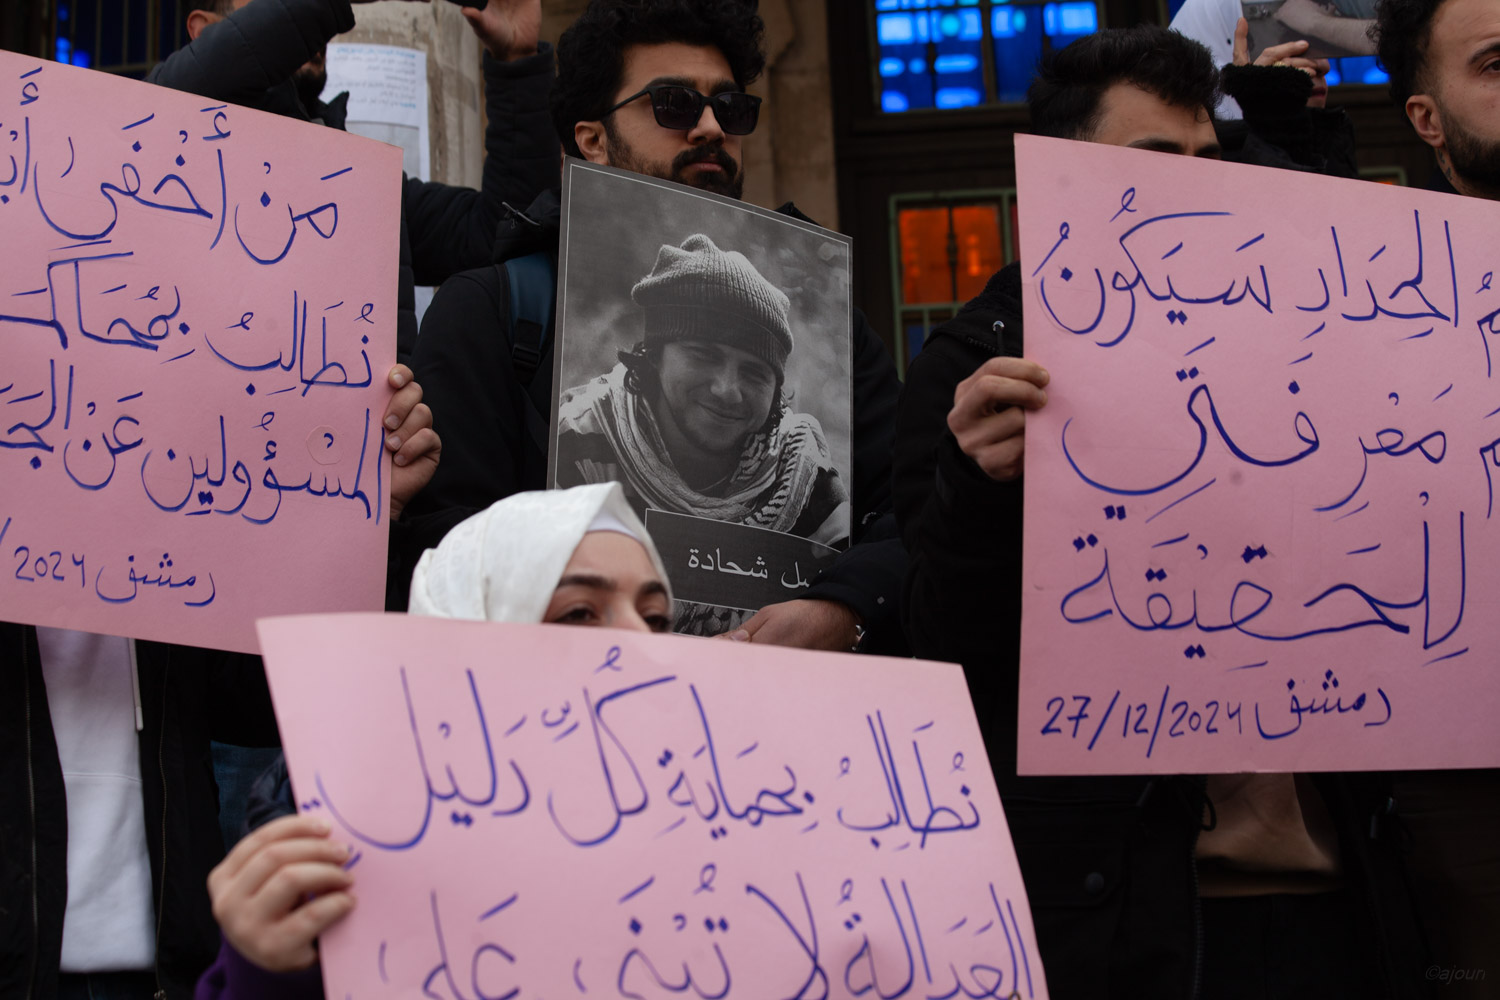 مَنْ أَخْفَىٰ
نُطَالِبُ بِمُحَاكَمَ
المَسْؤُولين عَنْ الجَ
دمشق 2024/
شحادة
الحِدَادِ سَيَكُونُ
مَعْرِفَتِي
لِلْحَقِيقَةِ
دمشق 27/12/2024
نُطَالِبُ بِحِمَايَةِ كُلِّ دَلِيْلٍ
العَدَالَةُ لا تُبْنَى عَلَى
©ajoun